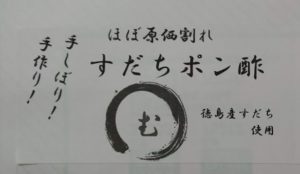 ほぼ原価割れ
すだちポン酢
手しぼり！
手作り！
む
徳島産すだち
使用